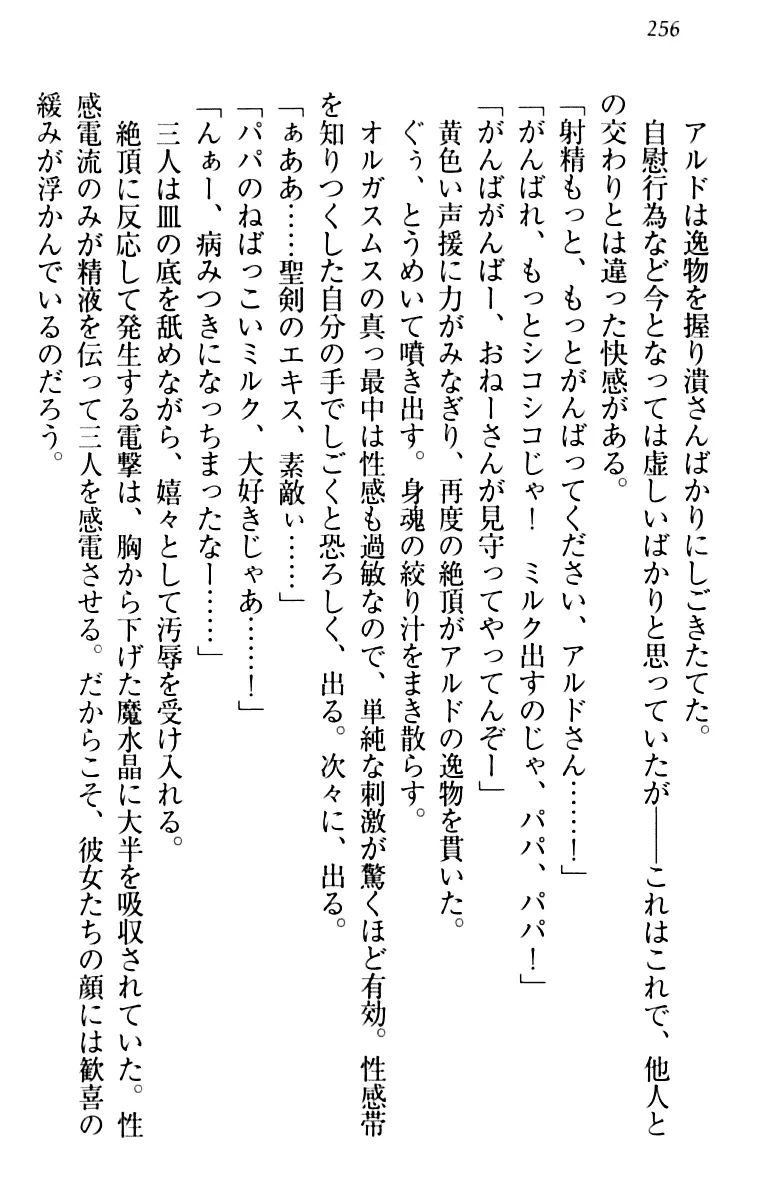 256
アルドは逸物を握り潰さんばかりにしごきたてた。
自慰行為など今となっては虚しいばかりと思っていたが――これはこれで、他人と
の交わりとは違った快感がある。
「射精もっと、もっとがんばってください、アルドさん……！」
「がんばれ、もっとシコシコじゃ！　ミルク出すのじゃ、パパ、パパ！」
「がんばがんばー、おねーさんが見守ってやってんぞー」
黄色い声援に力がみなぎり、再度の絶頂がアルドの逸物を貫いた。
ぐぅ、とうめいて噴き出す。身魂の絞り汁をまき散らす。
オルガスムスの真っ最中は性感も過敏なので、単純な刺激が驚くほど有効。性感帯
を知りつくした自分の手でしごくと恐ろしく、出る。次々に、出る。
「ぁああ……聖剣のエキス、素敵ぃ……」
「パパのねばっこいミルク、大好きじゃあ……！」
「んぁー、病みつきになっちまったなー……」
三人は皿の底を舐めながら、嬉々として汚辱を受け入れる。
絶頂に反応して発生する電撃は、胸から下げた魔水晶に大半を吸収されていた。性
感電流のみが精液を伝って三人を感電させる。だからこそ、彼女たちの顔には歓喜の
緩みが浮かんでいるのだろう。